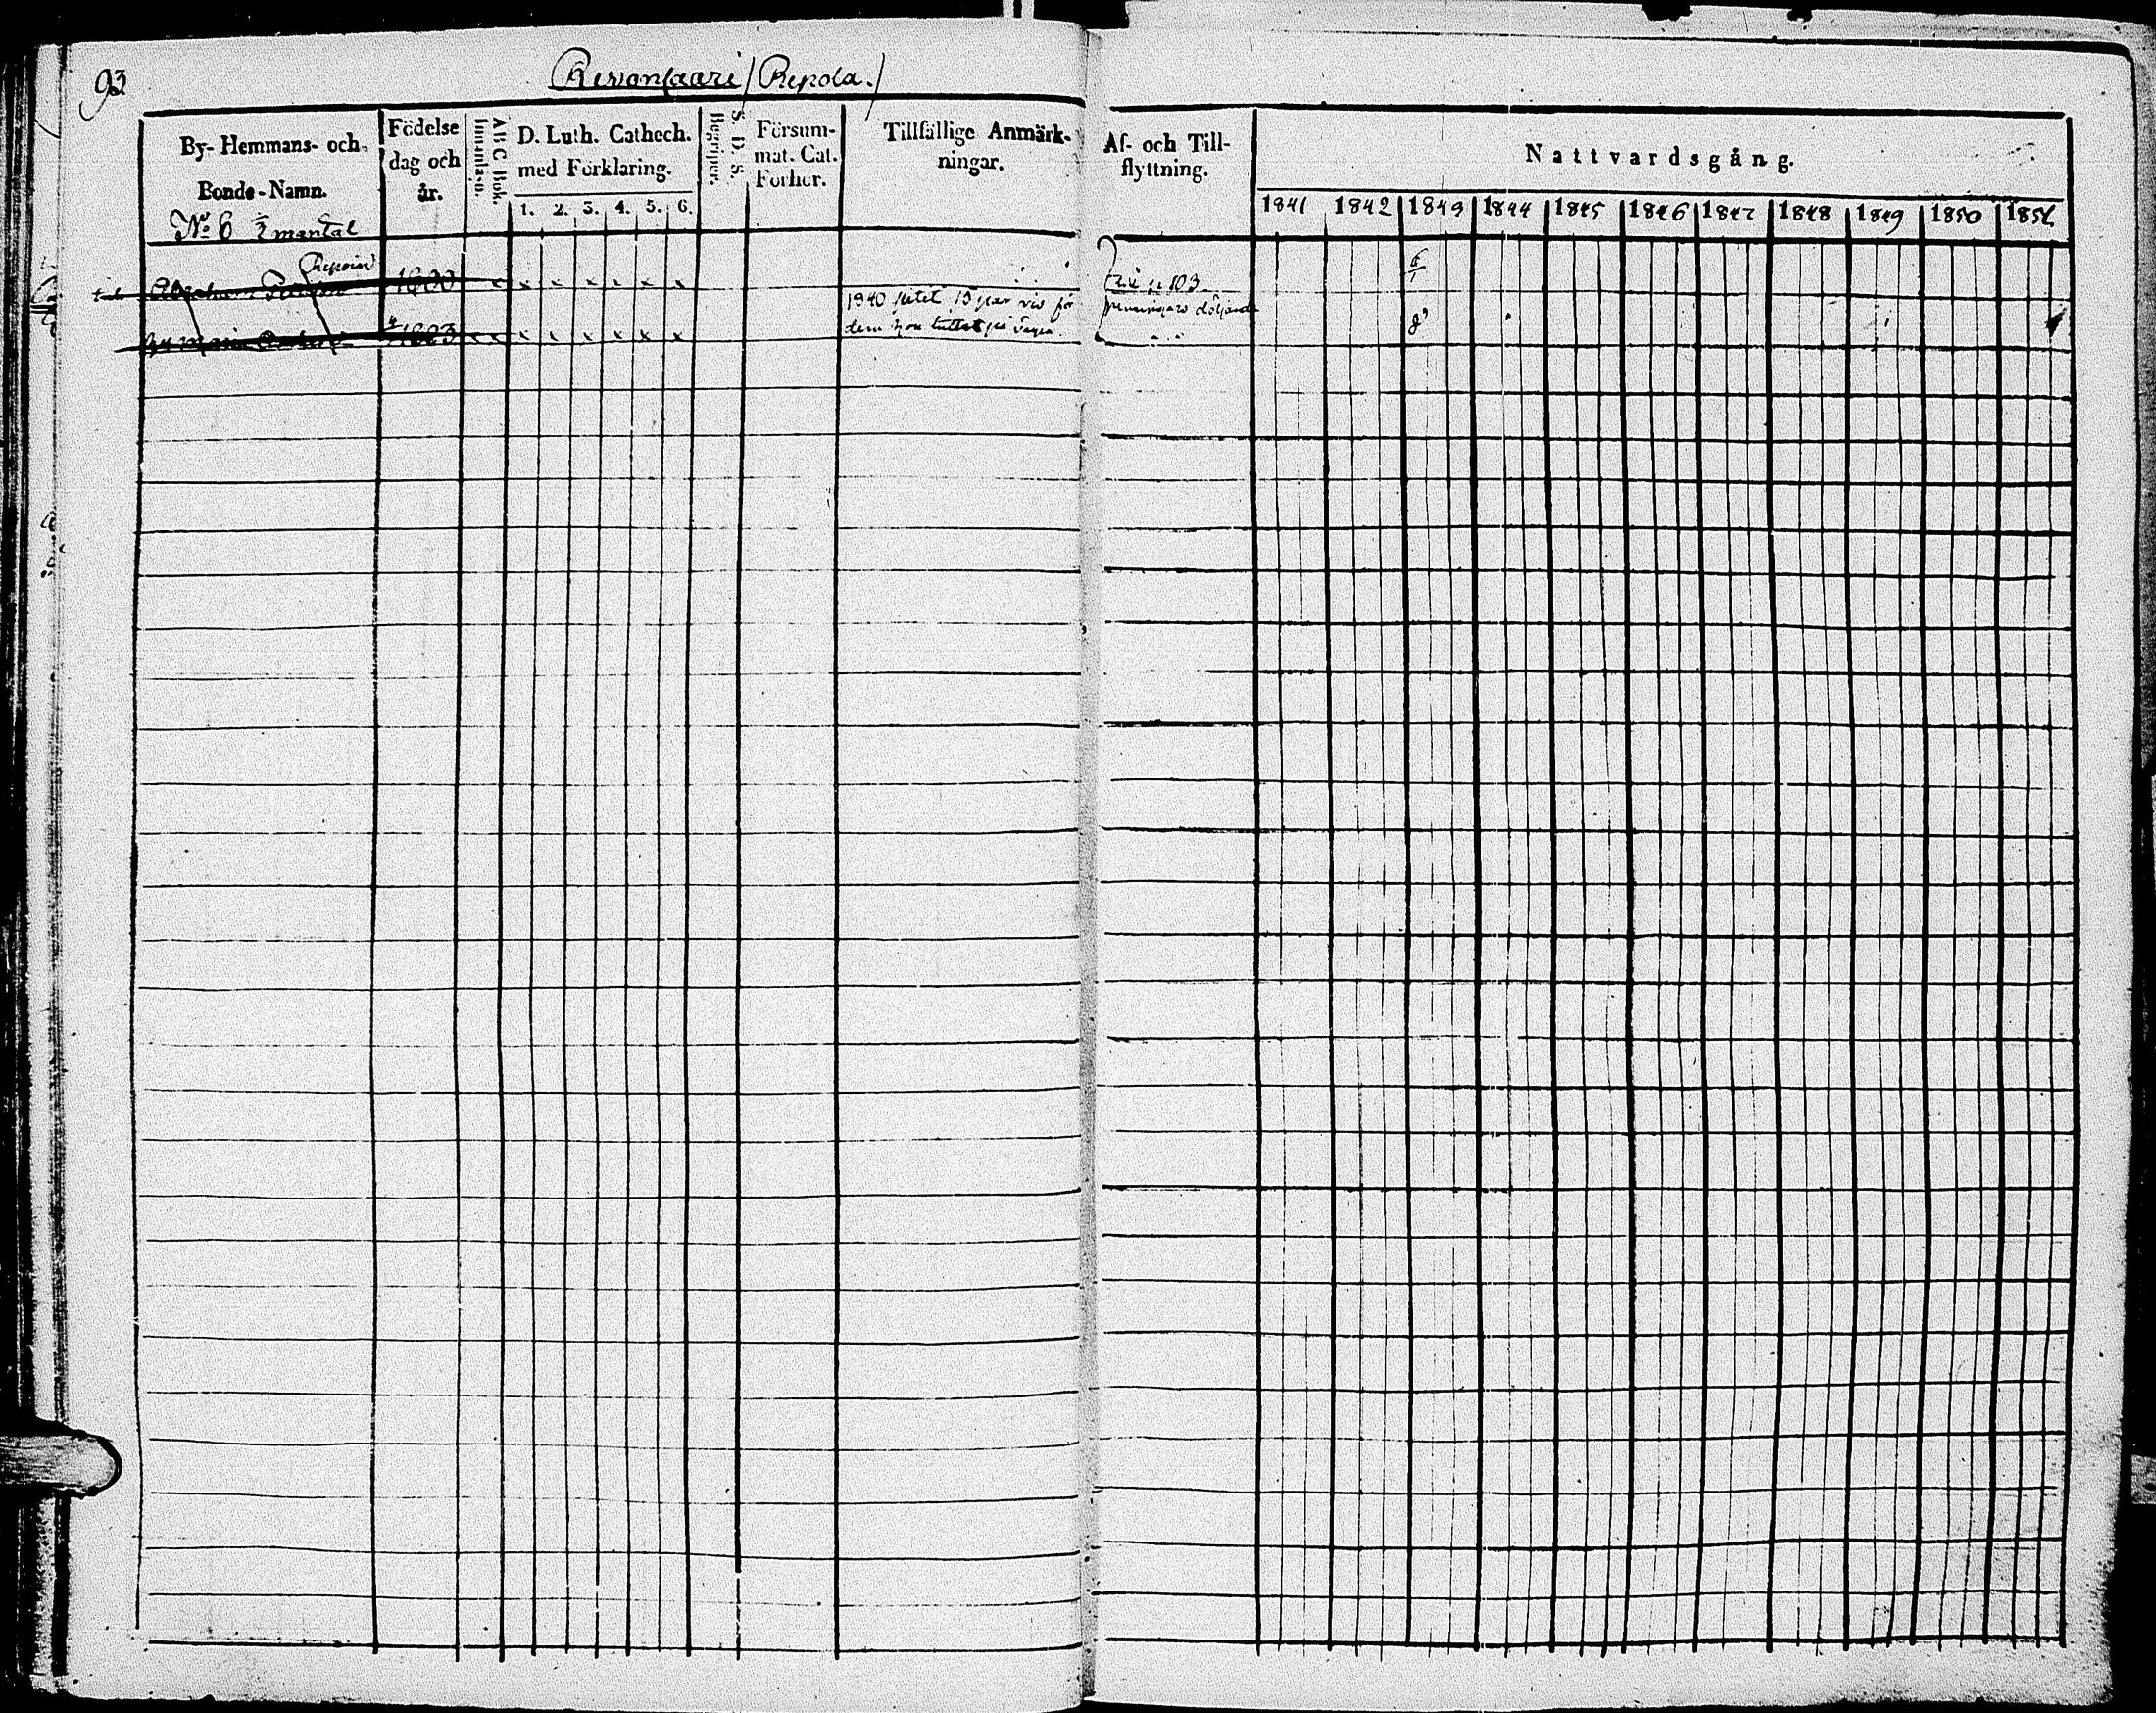 93
Revonsaari / Repola. /
By- Hemmans- och
Bonde-Namn.
Födelse
dag och
år.
A B C Bok.
Innanläsn.
D. Luth. Cathech.
med Förklaring.
1. 2. 3. 4. 5. 6.
S. D. S.
Begriper.
Försum-
mat. Cat.
Förhör.
Tillfällige Anmärk-
ningar.
Af- och Till-
flyttning.
Nattvardsgång.
1841 1842 1843 1844 1845 1846 1847 1848 1849 1850 1851
No 6 mantal
Repoin
Abraham 1800 x x x x x x
1803 x x x x x x
1840 15
dem på
103